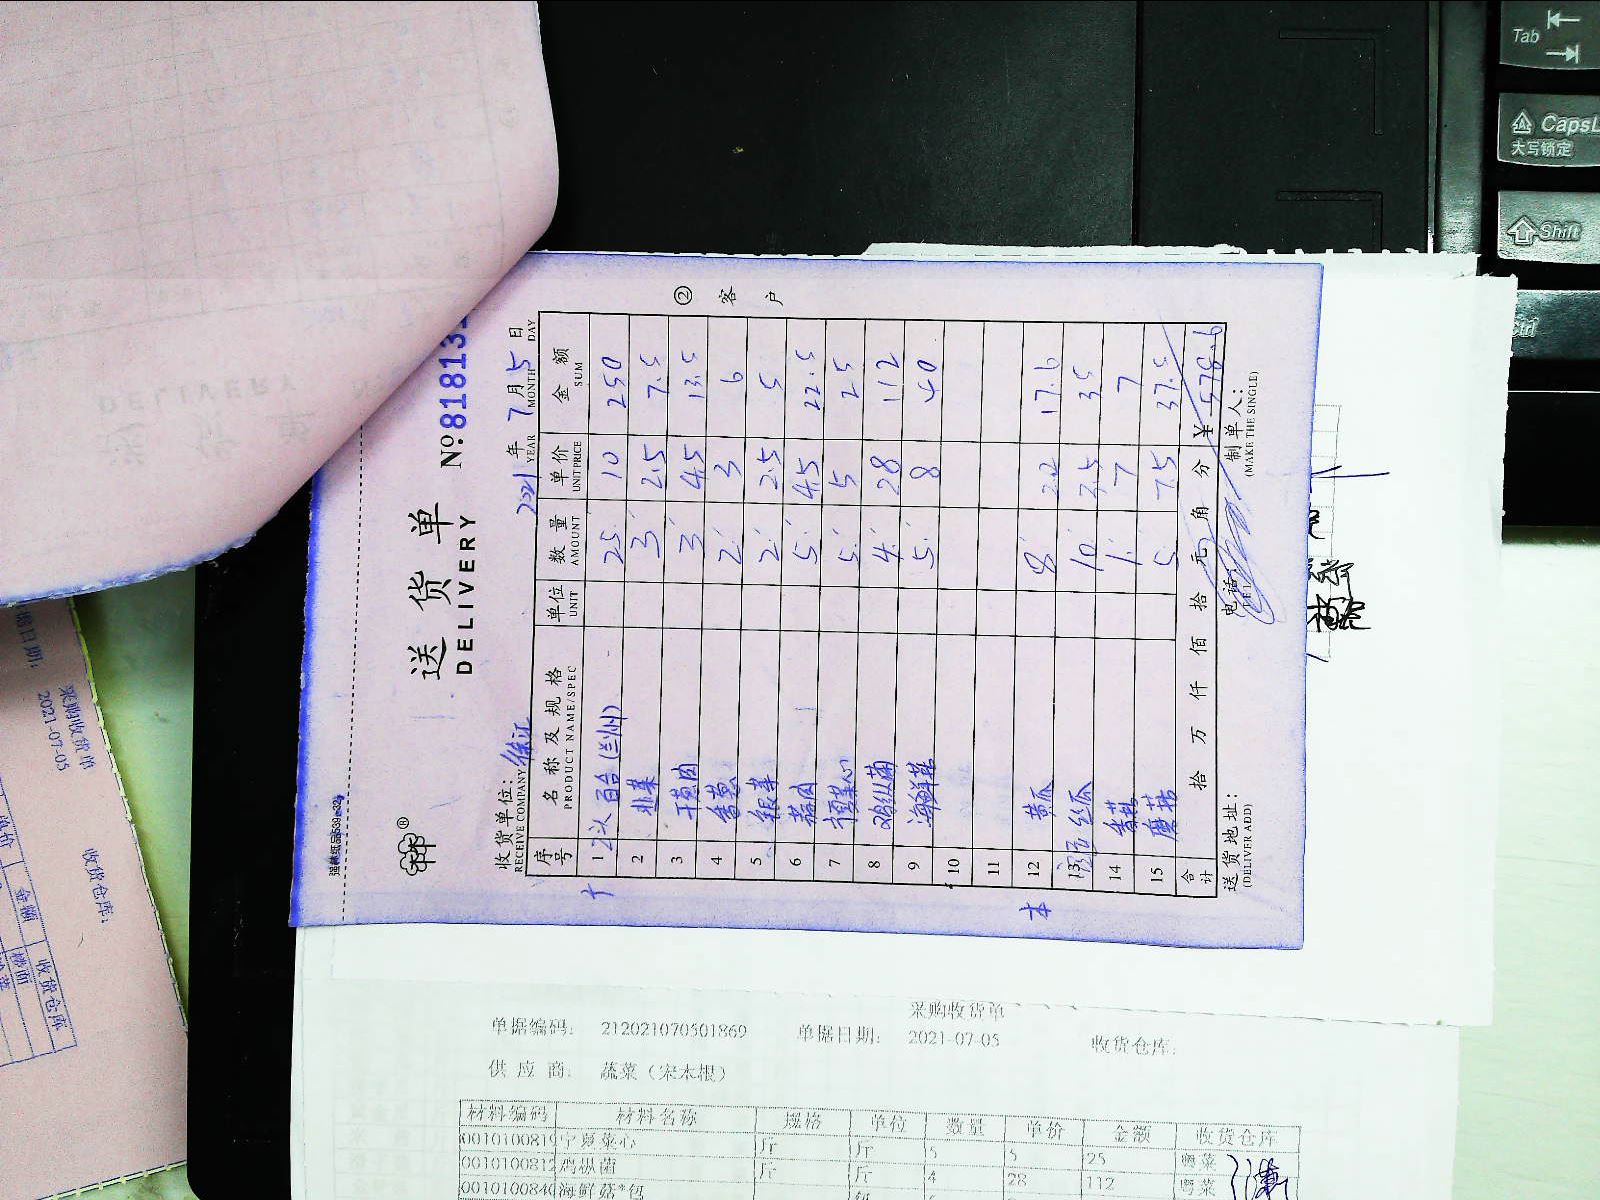 送货单
DELIVERY
No.818131
2021年7月5日
YEAR MONTH DAY
收货单位：徐汇
RECEIVE COMPANY
② 客户
序号 名称及规格 单位 数量 单价 金额
PRODUCT NAME/SPEC UNIT AMOUNT UNIT PRICE SUM
1 百合(兰州) 25 10 250
2 韭菜 3 2.5 7.5
3 干葱肉 3 4.5 13.5
4 香葱 2 3 6
5 2 2.5 5
6 蒜肉 5 4.5 22.5
7 5 5 25
8 鸡枞菌 4 28 112
9 海鲜菇 5 8 40
10
11
12 黄瓜 8 2.2 17.6
13 丝瓜 10 3.5 35
14 香菇 1 7 7
15 蘑菇 5 7.5 37.5
合计 拾 万 仟 佰 拾 元 角 分 ￥ 578.6
送货地址：
(DELIVER ADD)
电话：
制单人：
(MAKE THE SINGLE)
采购收货单
单据编码： 212021070501869 单据日期： 2021-07-05 收货仓库：
供应商： 蔬菜（宋本根）
材料编码 材料名称 规格 单位 数量 单价 金额 收货仓库
0010100819 宁夏菜心 斤 斤 5 5 25 粤菜
0010100812 鸡枞菌 斤 斤 4 28 112 粤菜
0010100840 海鲜菇*包
采购收货单
2021-07-05
收货仓库：
金额 收货仓库
Tab
CapsL
大写锁定
Shift
Ctrl